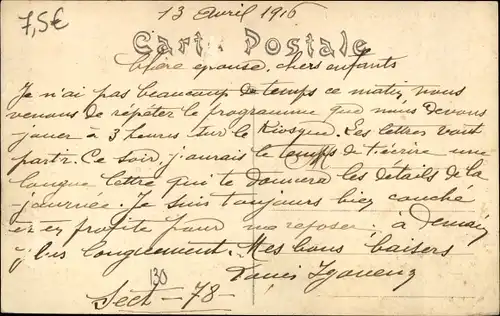 7,5€
13 Avril 1916
Carte Postale
Chère epouse, chers enfants
Je n'ai pas beaucoup de temps ce matin, nous
venons de répéter le programme que nous devons
jouer à 3 heures sur le Kiosque. Les lettres vont
partir. Ce soir, j'aurais le temps de t'écrire une
longue lettre qui te donnera les détails de la
journée. Je suis toujours bien couché
et en profite pour me reposer, à demain
plus longuement. Mes bons baisers
130
Sect - 78 -